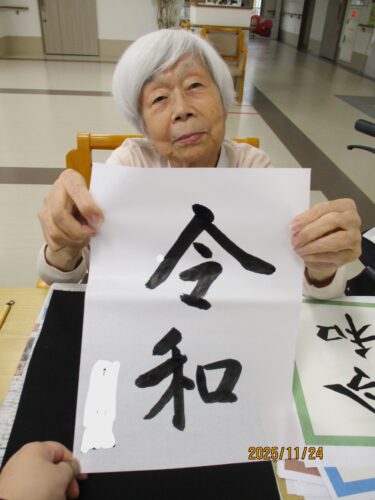 令
和
令和
2025/11/24